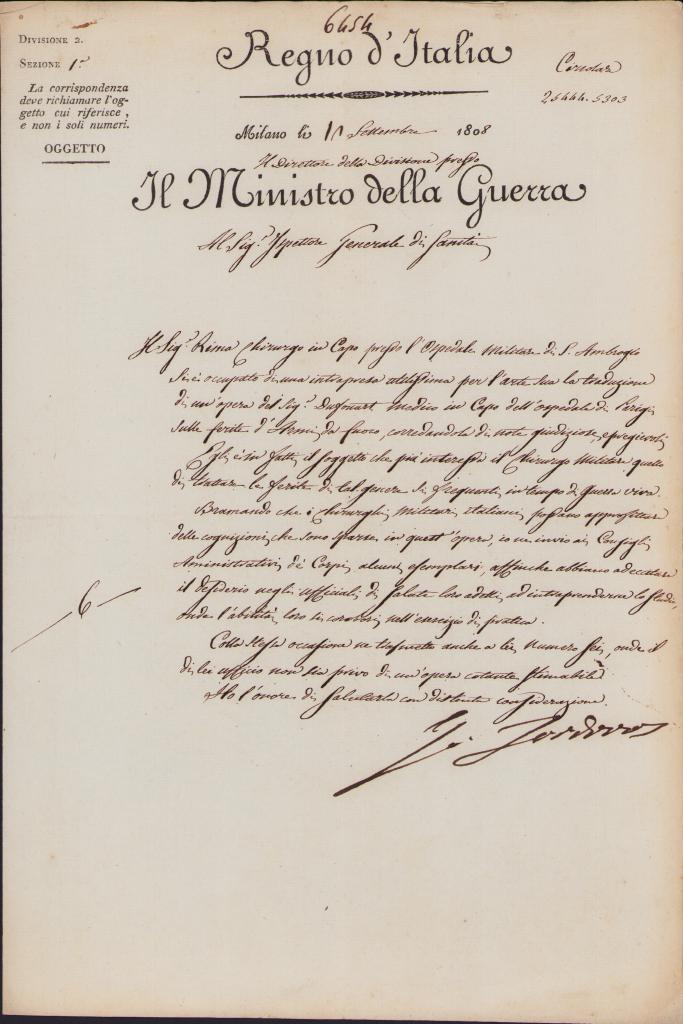 6454
Divisione 2.
Sezione 1.ª
La corrispondenza
deve richiamare l'og-
getto cui riferisce,
e non i soli numeri.
OGGETTO
Regno d'Italia
Circolare
25444.5303
Milano li 11 Settembre 1808
Il Direttore della Divisione presso
Il Ministro della Guerra
Al Sig.r Ispettore Generale di Sanità
Il Sig.r Rima Chirurgo in Capo presso l'Ospedale Militare di S. Ambrogio
si è occupato di una intrapresa utilissima per l'arte sua la traduzione
di un'opera del Sig.r Dufouart medico in Capo dell'ospedale di Parigi
sulle ferite d'Armi da fuoco, corredandola di note giudiziose, e pregievoli
Egli è in fatti il soggetto che più interessa il Chirurgo Militare quello
di trattar le ferite di tal genere sì frequenti in tempo di guerra viva.
Bramando che i Chirurghi Militari italiani possano approfittare
delle cognizioni che sono sparse in quest'opera, io ne invio ai Consigli
Amministrativi de' Corpi alcuni esemplari, affinchè abbiano ad eccitare
il desiderio negli ufficiali di Salute loro addetti ad intraprenderne lo studio,
onde l'abilità loro si coroni nell'esercizio di pratica.
6
Colla stessa occasione ne trasmetto anche a lei numero sei, onde il
di lei ufficio non sia privo di un'opera cotanto stimabile
Ho l'onore di salutarla con distinta considerazione.